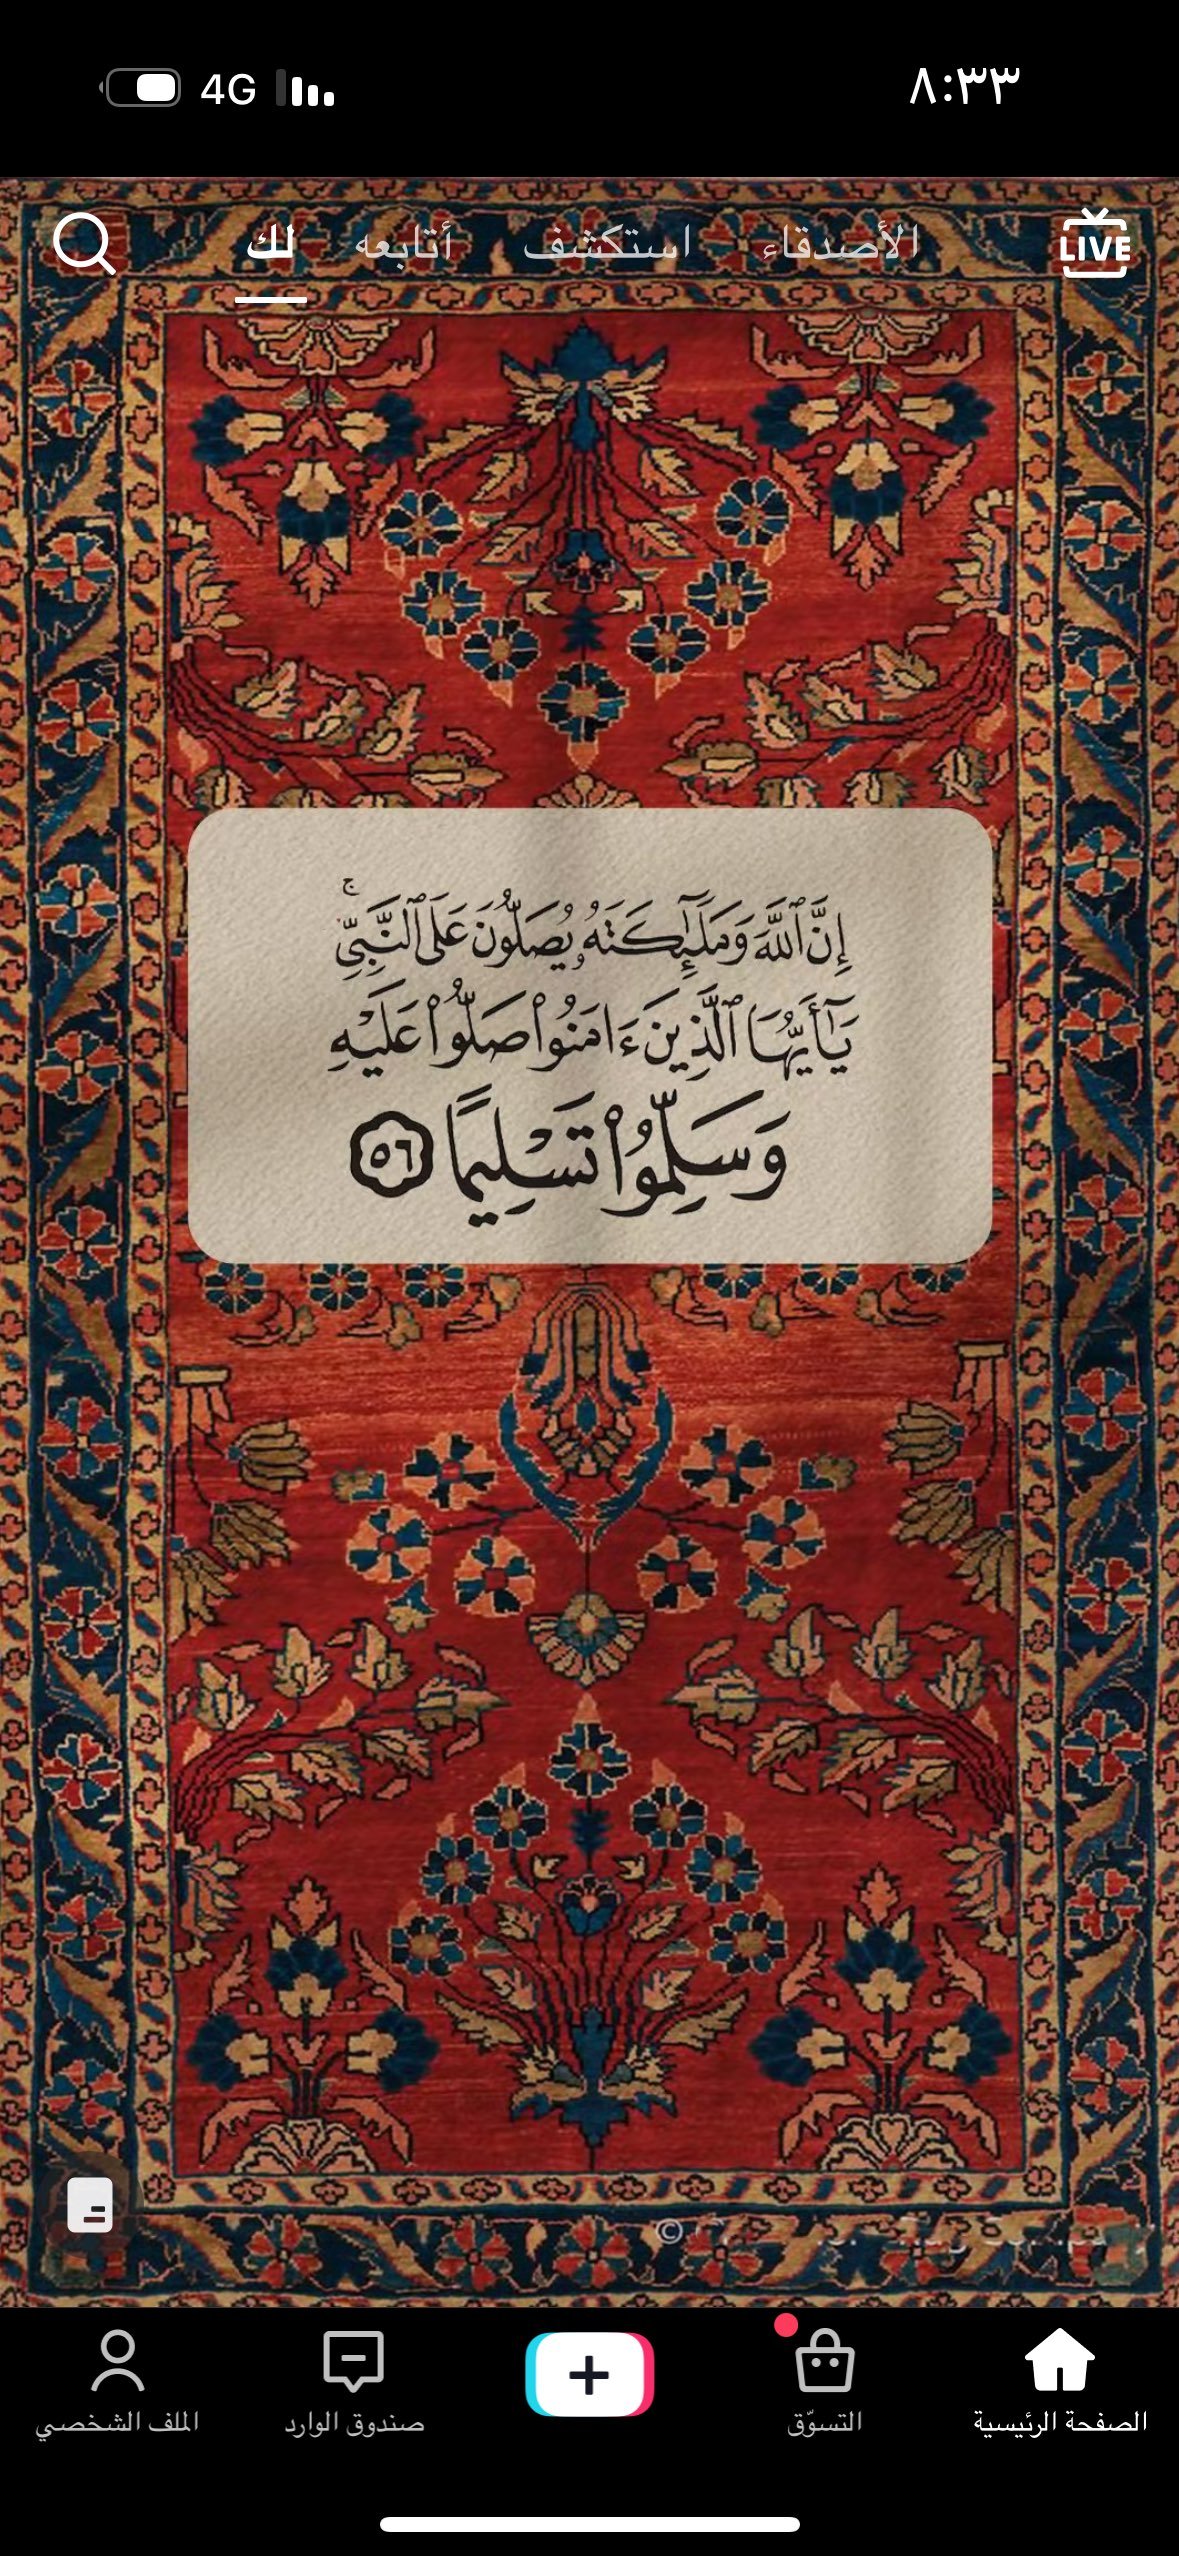 ٨:٣٣
4G
LIVE
الأصدقاء استكشف أتابعه لك
إِنَّ ٱللَّهَ وَمَلَٰٓئِكَتَهُۥ يُصَلُّونَ عَلَى ٱلنَّبِيِّۚ
يَٰٓأَيُّهَا ٱلَّذِينَ ءَامَنُوا۟ صَلُّوا۟ عَلَيْهِ
وَسَلِّمُوا۟ تَسْلِيمًا ٥٦
©
الصفحة الرئيسية التسوّق صندوق الوارد الملف الشخصي